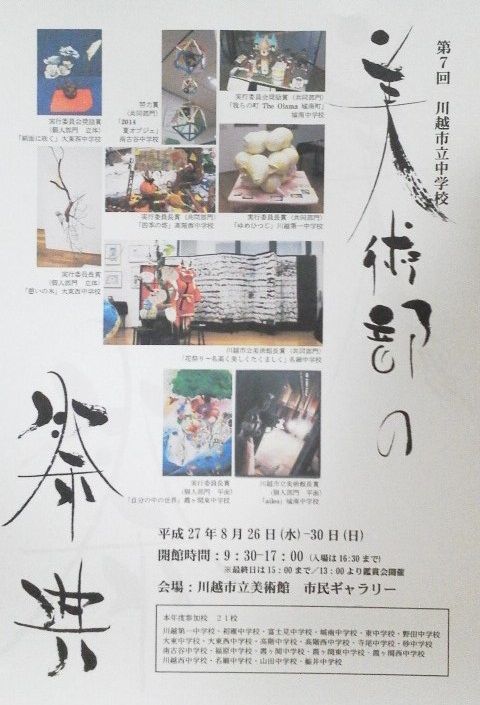 第7回 川越市立中学校
美術部の
祭典
実行委員会奨励賞
(個人部門 立体)
大東西中学校
努力賞
(共同部門)
「2014
夏オブジェ」
南古谷中学校
実行委員会奨励賞(共同部門)
「我らの町 The Oiama 城南町」
城南中学校
実行委員長賞(共同部門)
「四季の塔」高階西中学校
実行委員長賞(共同部門)
「ゆめひつじ」川越第一中学校
実行委員長賞
(個人部門 立体)
「憩いの木」大東西中学校
川越市立美術館長賞(共同部門)
「花祭り~名高く美しくたくましく」名細中学校
実行委員長賞
(個人部門 平面)
「自分の中の世界」霞ヶ関東中学校
川越市立美術館長賞
(個人部門 平面)
城南中学校
平成27年8月26日(水)-30日(日)
開館時間:9:30-17:00(入場は16:30まで)
※最終日は15:00まで/13:00より鑑賞会開催
会場:川越市立美術館 市民ギャラリー
本年度参加校 21校
川越第一中学校・初雁中学校・富士見中学校・城南中学校・東中学校・野田中学校
大東中学校・大東西中学校・高階中学校・高階西中学校・寺尾中学校・砂中学校
南古谷中学校・福原中学校・霞ヶ関中学校・霞ヶ関東中学校・霞ヶ関西中学校
川越西中学校・名細中学校・山田中学校・鯨井中学校